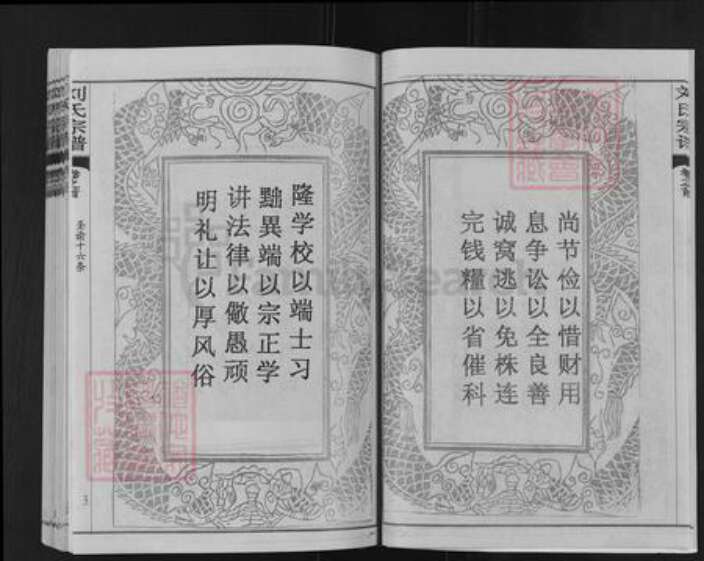 刘氏宗谱
卷之首
尚节俭以惜财用
息争讼以全良善
诚窝逃以免株连
完钱糧以省催科
隆学校以端士习
黜異端以宗正学
讲法律以儆愚顽
明礼让以厚风俗
刘氏宗谱
卷之首
圣谕十六条
3